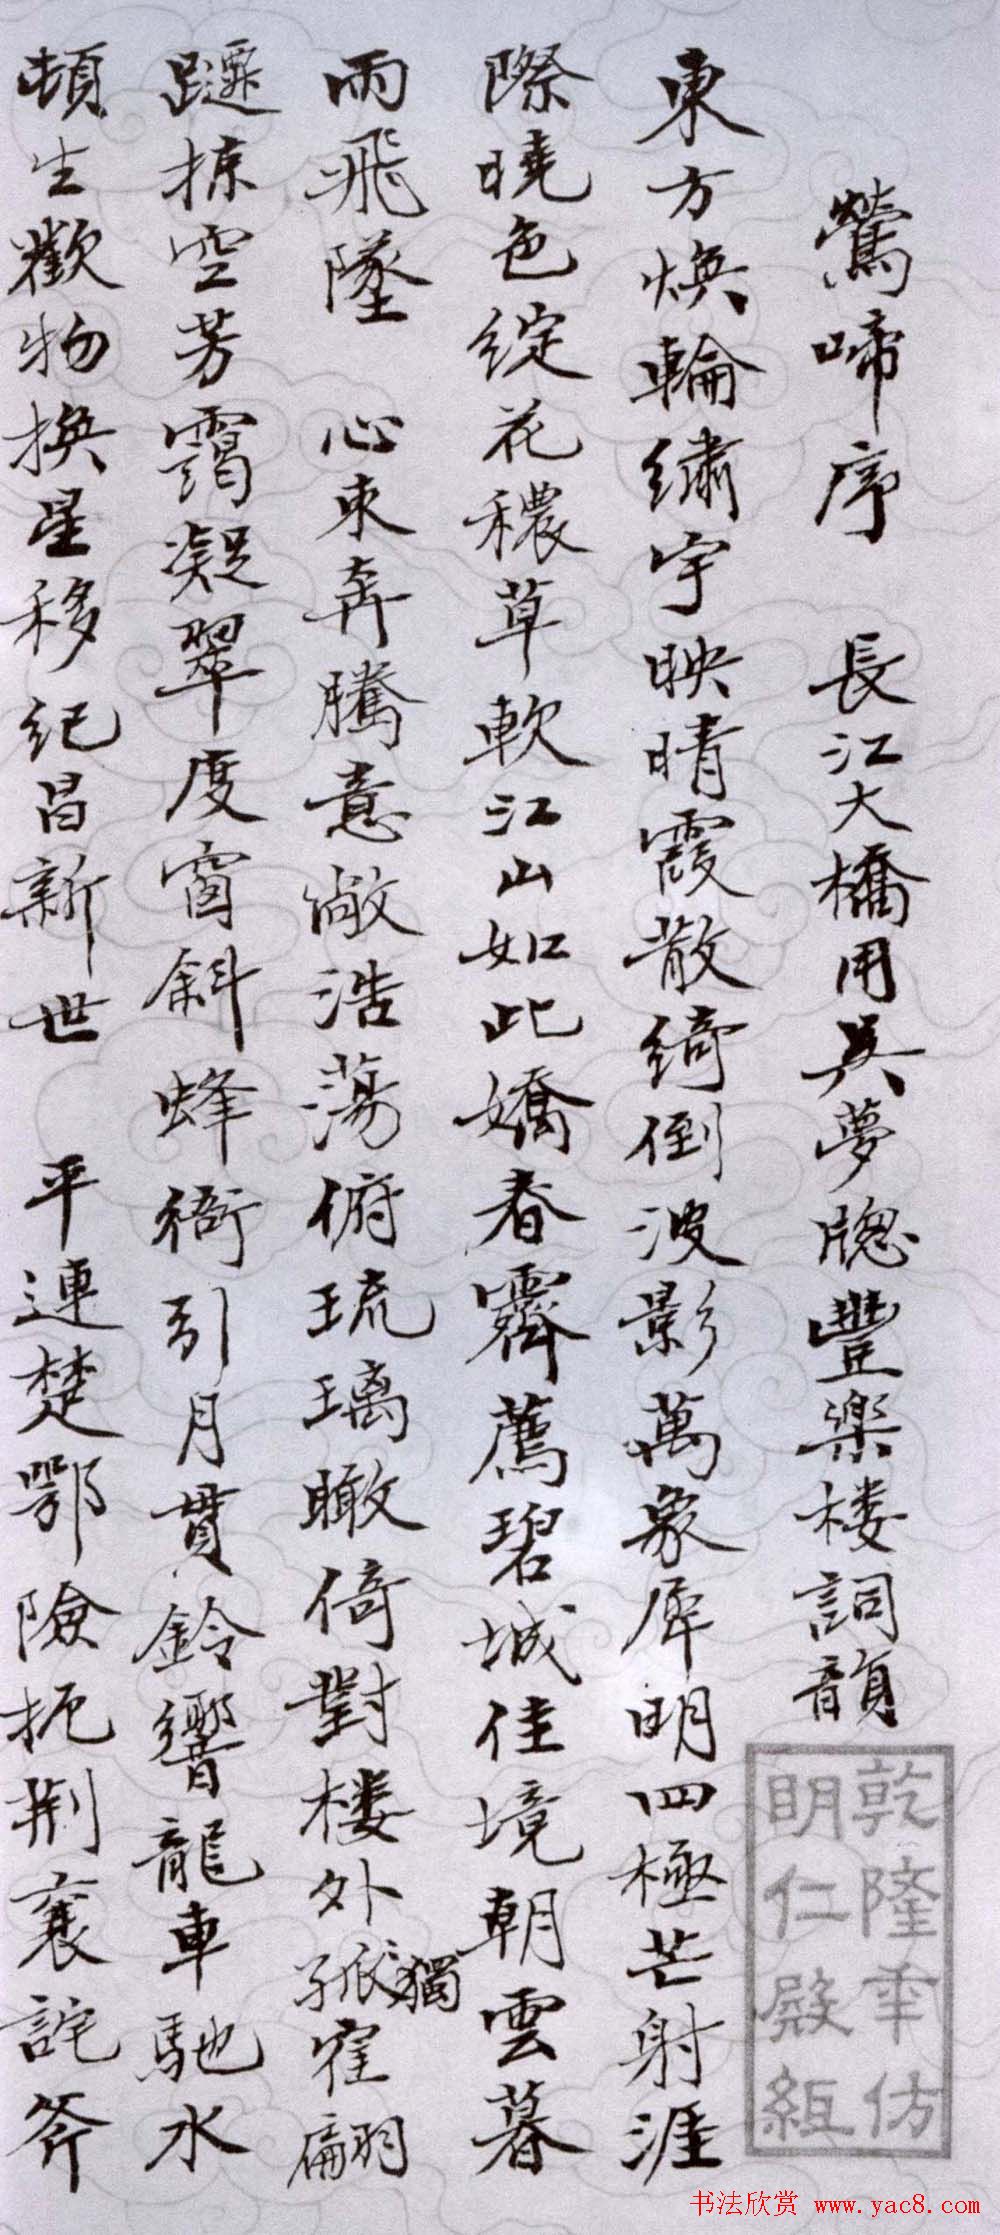 鶯啼序 長江大橋用吳夢窗豐樂楼詞韻
東方煥輪繡宇映晴霞散綺倒波影萬象犀明四極芒射涯
際曉色綻花穠草軟江山如此嬌春霽薦碧城佳境朝雲暮
雨飛墜 心束奔騰意敞浩蕩俯琉璃瞰倚對楼外孤獨隺翩
躚掠空芳靄凝翠度窗斜蜂衙引月貫鈴響龍車馳水
頓生歡物換星移紀昌新世 平連楚鄂險扼荆襄詫斧
乾隆年仿
明仁殿紙
书法欣赏 www.yac8.com